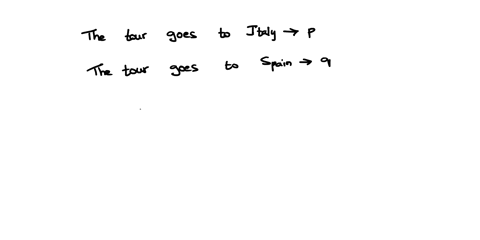 The tour goes to Italy → p
The tour goes to Spain → q